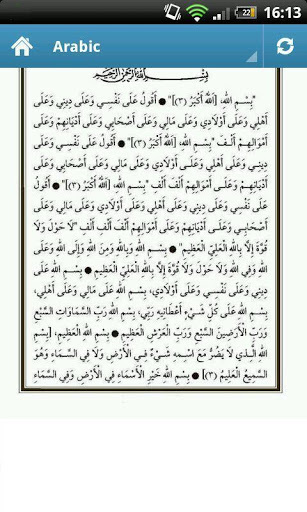 22 16:13
Arabic
بِسْمِ اللَّهِ الرَّحْمَنِ الرَّحِيمِ
"بِسْمِ اللهِ، [اللهُ أَكْبَرُ (٣)]" ● أَقُولُ عَلَى نَفْسِي وَعَلَى دِينِي وَعَلَى
أَهْلِي وَعَلَى أَوْلَادِي وَعَلَى مَالِي وَعَلَى أَصْحَابِي وَعَلَى أَدْيَانِهِمْ وَعَلَى
أَمْوَالِهِمْ أَلْفَ "بِسْمِ اللهِ، [اللهُ أَكْبَرُ (٣)]" ● أَقُولُ عَلَى نَفْسِي وَعَلَى
دِينِي وَعَلَى أَهْلِي وَعَلَى أَوْلَادِي وَعَلَى مَالِي وَعَلَى أَصْحَابِي وَعَلَى
أَدْيَانِهِمْ وَعَلَى أَمْوَالِهِمْ أَلْفَ أَلْفِ "بِسْمِ اللهِ، [اللهُ أَكْبَرُ (٣)]" ● أَقُولُ
عَلَى نَفْسِي وَعَلَى دِينِي وَعَلَى أَهْلِي وَعَلَى أَوْلَادِي وَعَلَى مَالِي وَعَلَى
أَصْحَابِي وَعَلَى أَدْيَانِهِمْ وَعَلَى أَمْوَالِهِمْ أَلْفَ أَلْفِ أَلْفِ "لَا حَوْلَ وَلَا
قُوَّةَ إِلَّا بِاللهِ الْعَلِيِّ الْعَظِيمِ" ● بِسْمِ اللهِ وَبِاللهِ وَمِنَ اللهِ وَإِلَى اللهِ وَعَلَى
اللهِ وَفِي اللهِ وَلَا حَوْلَ وَلَا قُوَّةَ إِلَّا بِاللهِ الْعَلِيِّ الْعَظِيمِ ● بِسْمِ اللهِ عَلَى
دِينِي وَعَلَى نَفْسِي وَعَلَى أَوْلَادِي ● بِسْمِ اللهِ عَلَى مَالِي وَعَلَى أَهْلِي،
بِسْمِ اللهِ عَلَى كُلِّ شَيْءٍ أَعْطَانِيهِ رَبِّي، بِسْمِ اللهِ رَبِّ السَّمَاوَاتِ السَّبْعِ
وَرَبِّ الْأَرَضِينَ السَّبْعِ وَرَبِّ الْعَرْشِ الْعَظِيمِ ● بِسْمِ اللهِ الْعَظِيمِ، بِسْمِ
اللهِ الَّذِي لَا يَضُرُّ مَعَ اسْمِهِ شَيْءٌ فِي الْأَرْضِ وَلَا فِي السَّمَاءِ وَهُوَ
السَّمِيعُ الْعَلِيمُ (٣) ● بِسْمِ اللهِ خَيْرِ الْأَسْمَاءِ فِي الْأَرْضِ وَفِي السَّمَاءِ